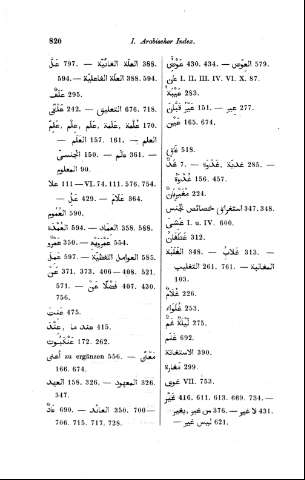 820 I. Arabischer Index.
عَلَّ 797. — العلّة الغائيّة 388.
594. — العلّة الفاعليّة 388. 594.
عَلَفٌ 295.
242. — التعليق 676. 718.
عَلِمَ, عَلَّمَ 170.
العلم — 157. 161. —
عالم 361. — الجنسى 150. —
المعلوم 90
علا 111 — VI. 74. 111. 576. 754.
عَلُ 429. — غلام 364.
العموم 590.
العُمْدة 594. — العماد 358. 588.
عَمْرو 350. — عَمْرَوَيْه 554.
عَمِلَ 597. — العوامل اللفظيّة 585.
عَنْ 371. 373. 406—408. 521.
571. — فضلًا عَنْ 407. 430.
756.
عَنِتَ 475.
عند ما, عِنْدَ 415.
عنكبوت 172. 262.
أعنى zu ergänzen 556. — مَعْنًى
166. 674.
العهد 158. 326. — المعهود 326.
347.
عادَ 690. — العائد 350. 700—
706. 715. 717. 728.
عِوَضٌ 430. 434. — العوض 579.
عن I. II. III. IV. VI. X. 87.
عَيْبة 283.
عير 151. — عير 277.
عَيْن 165. 674.
518.
غَدٌ 7. — غدوة 285. —
غُدْوةَ 156. 457.
224.
استغراق خصائص الجنس 347. 348.
غشى I. u. IV. 600.
غَطَفانُ 312.
الغلبة 348. — غلاب 313. —
المغالبة 261. 761. — التغليب
103.
غلام 226.
غُلَواء 253.
ليلة غَمّ 275.
غنم 692.
الاستغاثة 390.
مغارة 299.
غوى VII. 753.
غَيْر 416. 611. 613. 669. 734. —
لا غير 431. — من غير, بغير 376. —
ليس غير 621.